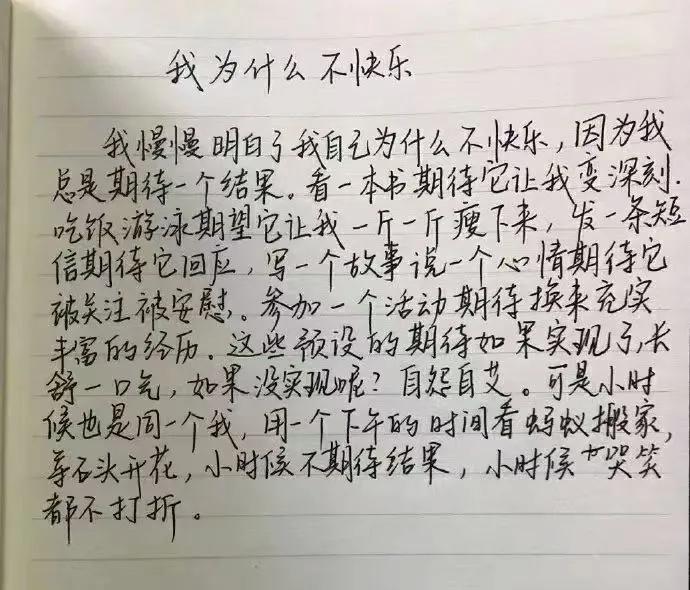 我为什么不快乐
我慢慢明白了我自己为什么不快乐，因为我
总是期待一个结果。看一本书期待它让我变深刻.
吃饭游泳期望它让我一斤一斤瘦下来，发一条短
信期待它回应，写一个故事说一个心情期待它
被关注被安慰。参加一个活动期待换来充实
丰富的经历。这些预设的期待如果实现了,长
舒一口气，如果没实现呢？自怨自艾。可是小时
候也是同一个我，用一个下午的时间看蚂蚁搬家,
等石头开花，小时候不期待结果，小时候哭笑
都不打折。